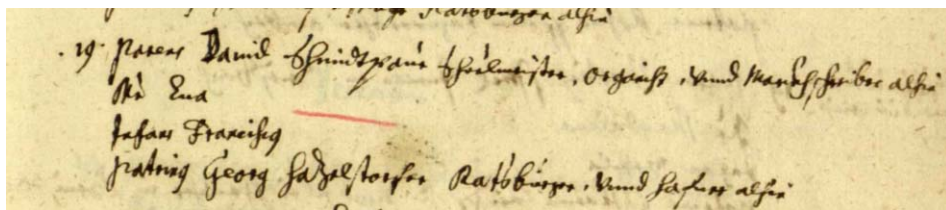 Ratsburger alhie
. 19 . Parens David Schmidtpaur Schuelmeister, Organist, vnnd Marckhschreiber alhie
Mr Eua
Infans Franciscus
Patrinus Georg Hatzelstorfer Ratsburger, vnnd Hafner alhie